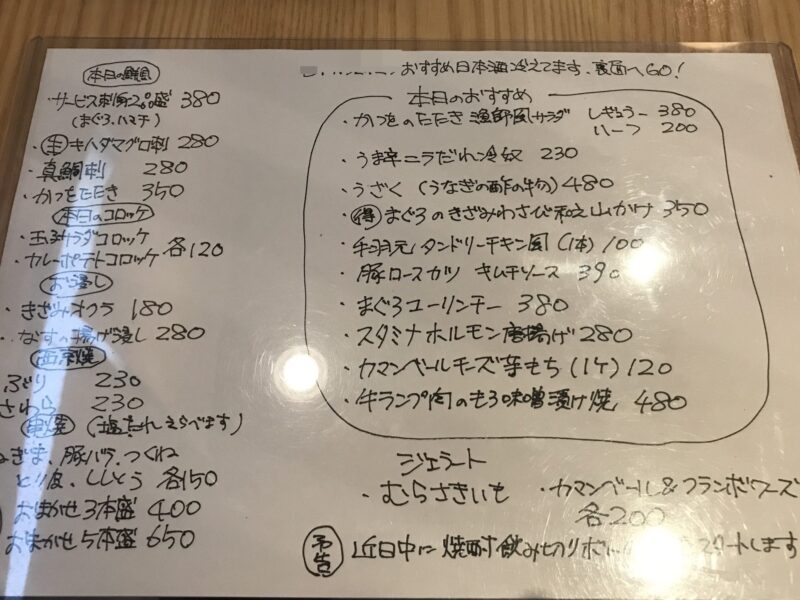 本日の鮮魚
サービス刺身2点盛 380
(まぐろ、ハマチ)
・生キハダマグロ刺 280
・真鯛刺 280
・かつをたたき 350
本日のコロッケ
・玉子サラダコロッケ
・カレーポテトコロッケ 各120
お浸し
・きざみオクラ 180
・なすの揚げ浸し 280
西京焼
ぶり 230
さわら 230
串焼 (塩たれえらべます)
ねぎま、豚バラ、つくね
とり皮、ししとう 各150
おまかせ3本盛 400
おまかせ5本盛 650
おすすめ日本酒冷えてます、裏面へGO!
本日のおすすめ
・かつをのたたき漁師風サラダ レギュラー 380
ハーフ 200
・うま辛ニラだれ冷奴 230
・うざく (うなぎの酢の物) 480
・得 まぐろのきざみわさび和え山かけ 350
・手羽元タンドリーチキン風 (1本) 100
・豚ロースカツ キムチソース 390
・まぐろユーリンチー 380
・スタミナホルモン唐揚げ 280
・カマンベールチーズ芋もち (1ケ) 120
・牛ランプ肉のもろ味噌漬け焼 480
ジェラート
・むらさきいも ・カマンベール&フランボワーズ
各200
予告 近日中に焼酎飲み切りボ スタートします